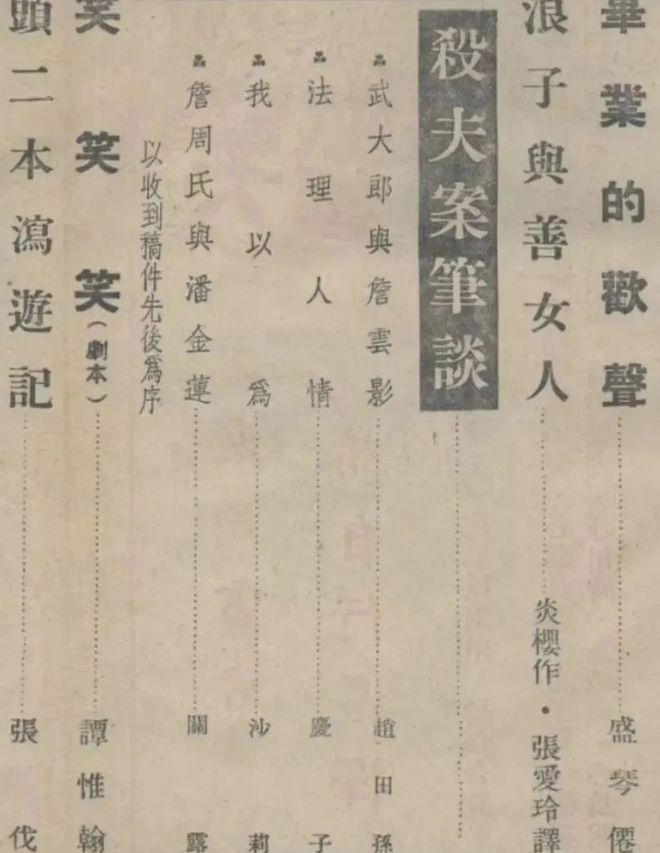 畢業的歡聲……盛琴僊
浪子與善女人……炎櫻作・張愛玲譯
殺夫案筆談……
武大郎與詹雲影……趙田孫
法理人情……慶子
我以為……沙莉
詹周氏與潘金蓮……關露
以收到稿件先後為序
笑笑笑（劇本）……譚惟翰
頭二本瀉遊記……張伐